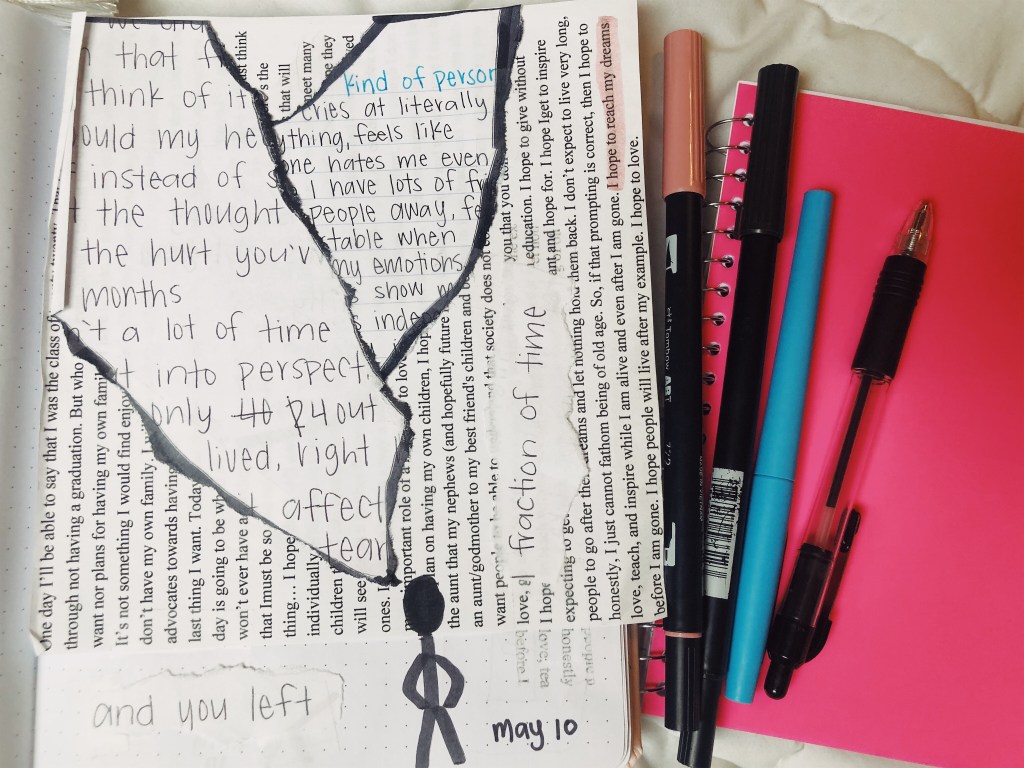 that f
think of it
ould my he
instead of s
the thought
the hurt you'v
months
't a lot of time
t into perspect
only 40 24 out
lived, right
t affect
tear
kind of person
cries at literally
ything, feels like
one hates me even
I have lots of fri
people away, fe
table when
my emotions
s show m
inde
One day I'll be able to say that I was the class of
through not having a graduation. But who
want nor plans for having my own family
It's not something I would find enjoy
don't have my own family, I
advocates towards having
last thing I want. Today
day is going to be wh
won't ever have a
that I must be so
thing… I hope
individually.
children
will see
ones. I
just think
that will
meet many
be they
important role of a
to love
an on having my own children, I hop
the aunt that my nephews (and hopefully future
an aunt/godmother to my best friend's children and be
want people to be able to understand that society does not
you that you don
love,
I hope
education. I hope to give without
ant and hope for. I hope I get to inspire
expecting to get
them back. I don't expect to live very long,
people to go after the dreams and let nothing hold
honestly, I just cannot fathom being of old age. So, if that prompting is correct, then I hope to
love, teach, and inspire while I am alive and even after I am gone. I hope to reach my dreams
before I am gone. I hope people will live after my example. I hope to love.
fraction of time
love, tea
honestly
before I
and you left
may 10
Tombow ART